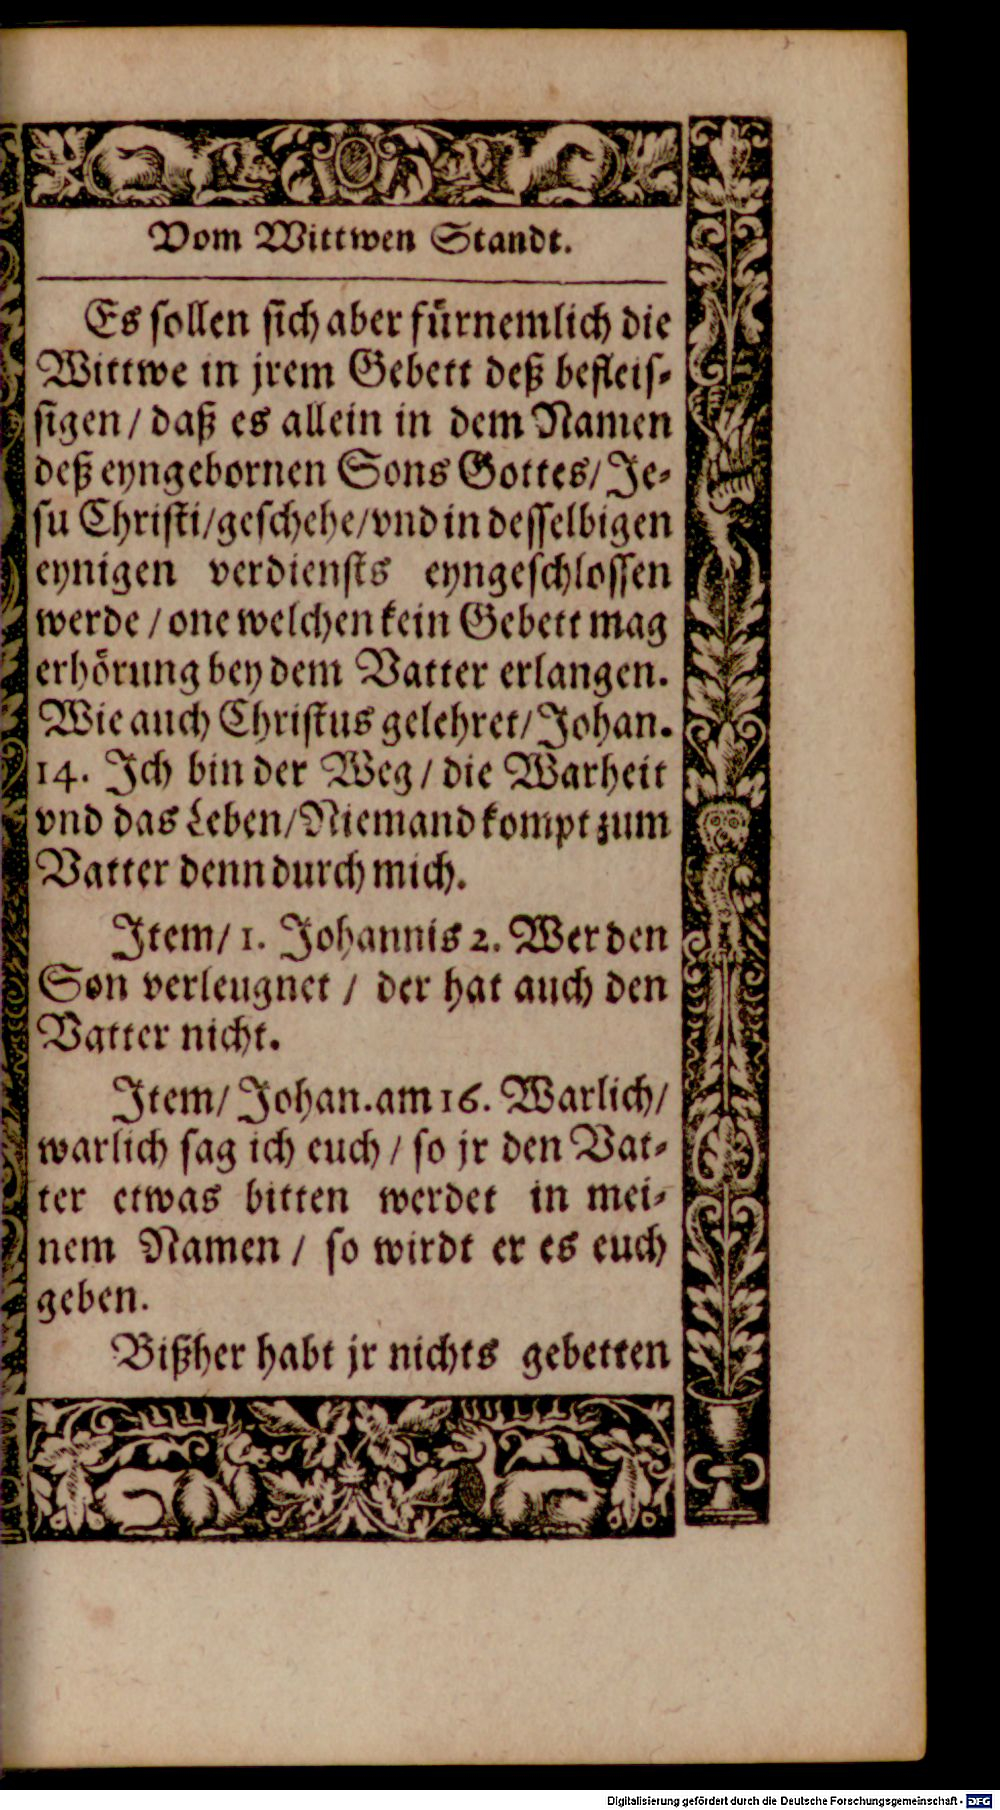 Vom Wittwen Standt.
Es sollen sich aber fürnemlich die
Wittwe in jrem Gebett deß befleis-
sigen / daß es allein in dem Namen
deß eyngebornen Sons Gottes / Je-
su Christi / geschehe / vnd in desselbigen
eynigen verdiensts eyngeschlossen
werde / one welchen kein Gebett mag
erhörung bey dem Vatter erlangen.
Wie auch Christus gelehret / Johan.
14. Ich bin der Weg / die Warheit
vnd das Leben / Niemand kompt zum
Vatter denn durch mich.
Item / 1. Johannis 2. Wer den
Son verleugnet / der hat auch den
Vatter nicht.
Item / Johan. am 16. Warlich /
warlich sag ich euch / so jr den Vat-
ter etwas bitten werdet in mei-
nem Namen / so wirdt er es euch
geben.
Bißher habt jr nichts gebetten
Digitalisierung gefördert durch die Deutsche Forschungsgemeinschaft - DFG